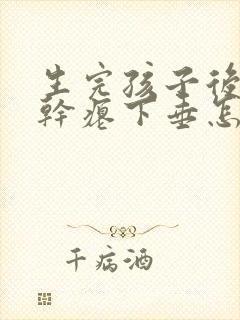 生完孩子後
幹瘪下垂怎
千病酒